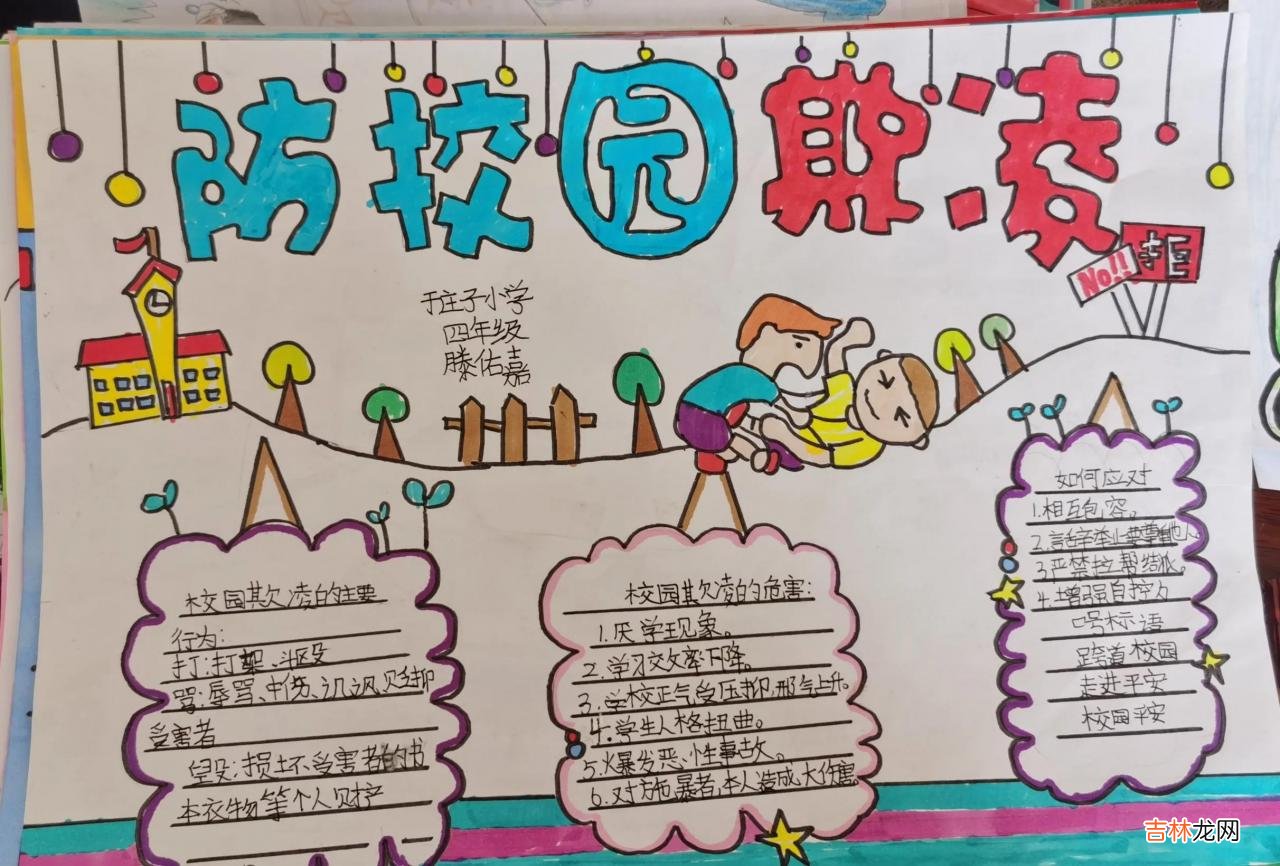 防校园欺凌
No!!
拒
于庄子小学
四年级
滕佑嘉
校园欺凌的主要
行为:
打:打架、斗殴
骂:辱骂、中伤、讥讽、贬抑
受害者
毁:损坏受害者的书
本衣物等个人财产
校园欺凌的危害:
1.厌学现象。
2.学习交效率下降。
3.学校正气受压抑,邪气上升。
4.学生人格扭曲。
5.爆发恶性事故。
6.对方施暴者,本人造成大伤害
如何应对
1.相互包容。
2.言
3.严禁拉帮结派。
4.增强自控力
号标语
校园
走进平安
校园平安
吉林龙网